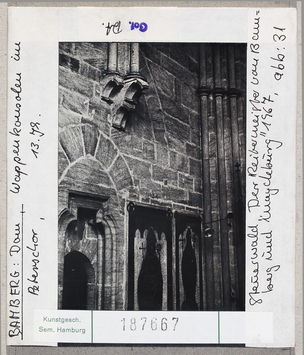 Col. Df.
BAMBERG: Dom, Wappenkonsolen im
Peterschor, 13. Jh.
Grünewald "Der Reitermeister von Bam=
berg und Magdeburg" 1967, Abb: 31
Kunstgesch.
Sem. Hamburg
187667